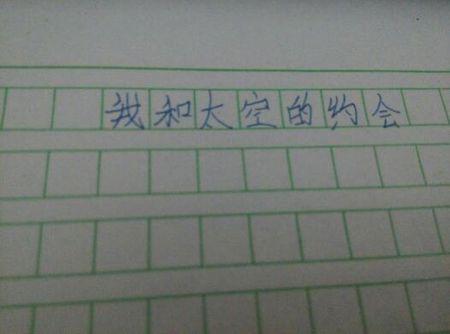 我和太空的约会